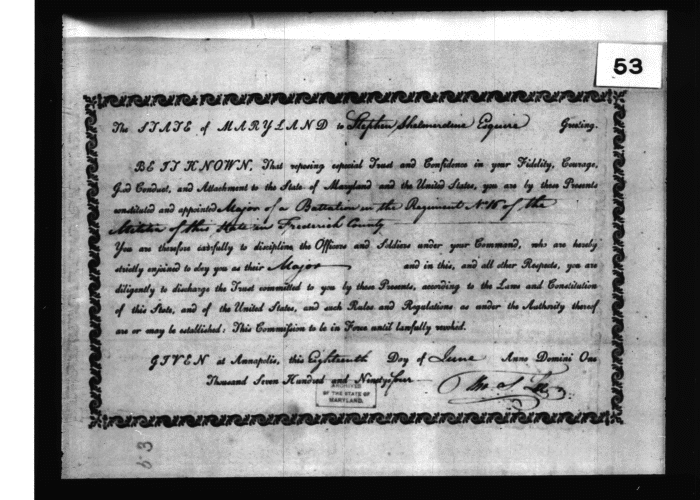 53
The STATE of MARYLAND to Stephen Shelmerdine Esquire Greeting.
BE IT KNOWN, That reposing especial Trust and Confidence in your Fidelity, Courage,
Good Conduct, and Attachment to the State of Maryland and the United States, you are by these Presents
constituted and appointed Major of a Battalion in the Regiment No 16 of the
Militia of this State in Frederick County
You are therefore carefully to discipline the Officers and Soldiers under your Command, who are hereby
strictly enjoined to obey you as their Major and in this, and all other Respects, you are
diligently to discharge the Trust committed to you by these Presents, according to the Laws and Constitution
of this State, and of the United States, and such Rules and Regulations as under the Authority thereof
are or may be established: This Commission to be in Force until lawfully revoked.
GIVEN at Annapolis, this Eighteenth Day of June Anno Domini One
Thousand Seven Hundred and Ninety four
Tho. S. Lee
ARCHIVES
OF THE STATE OF
MARYLAND